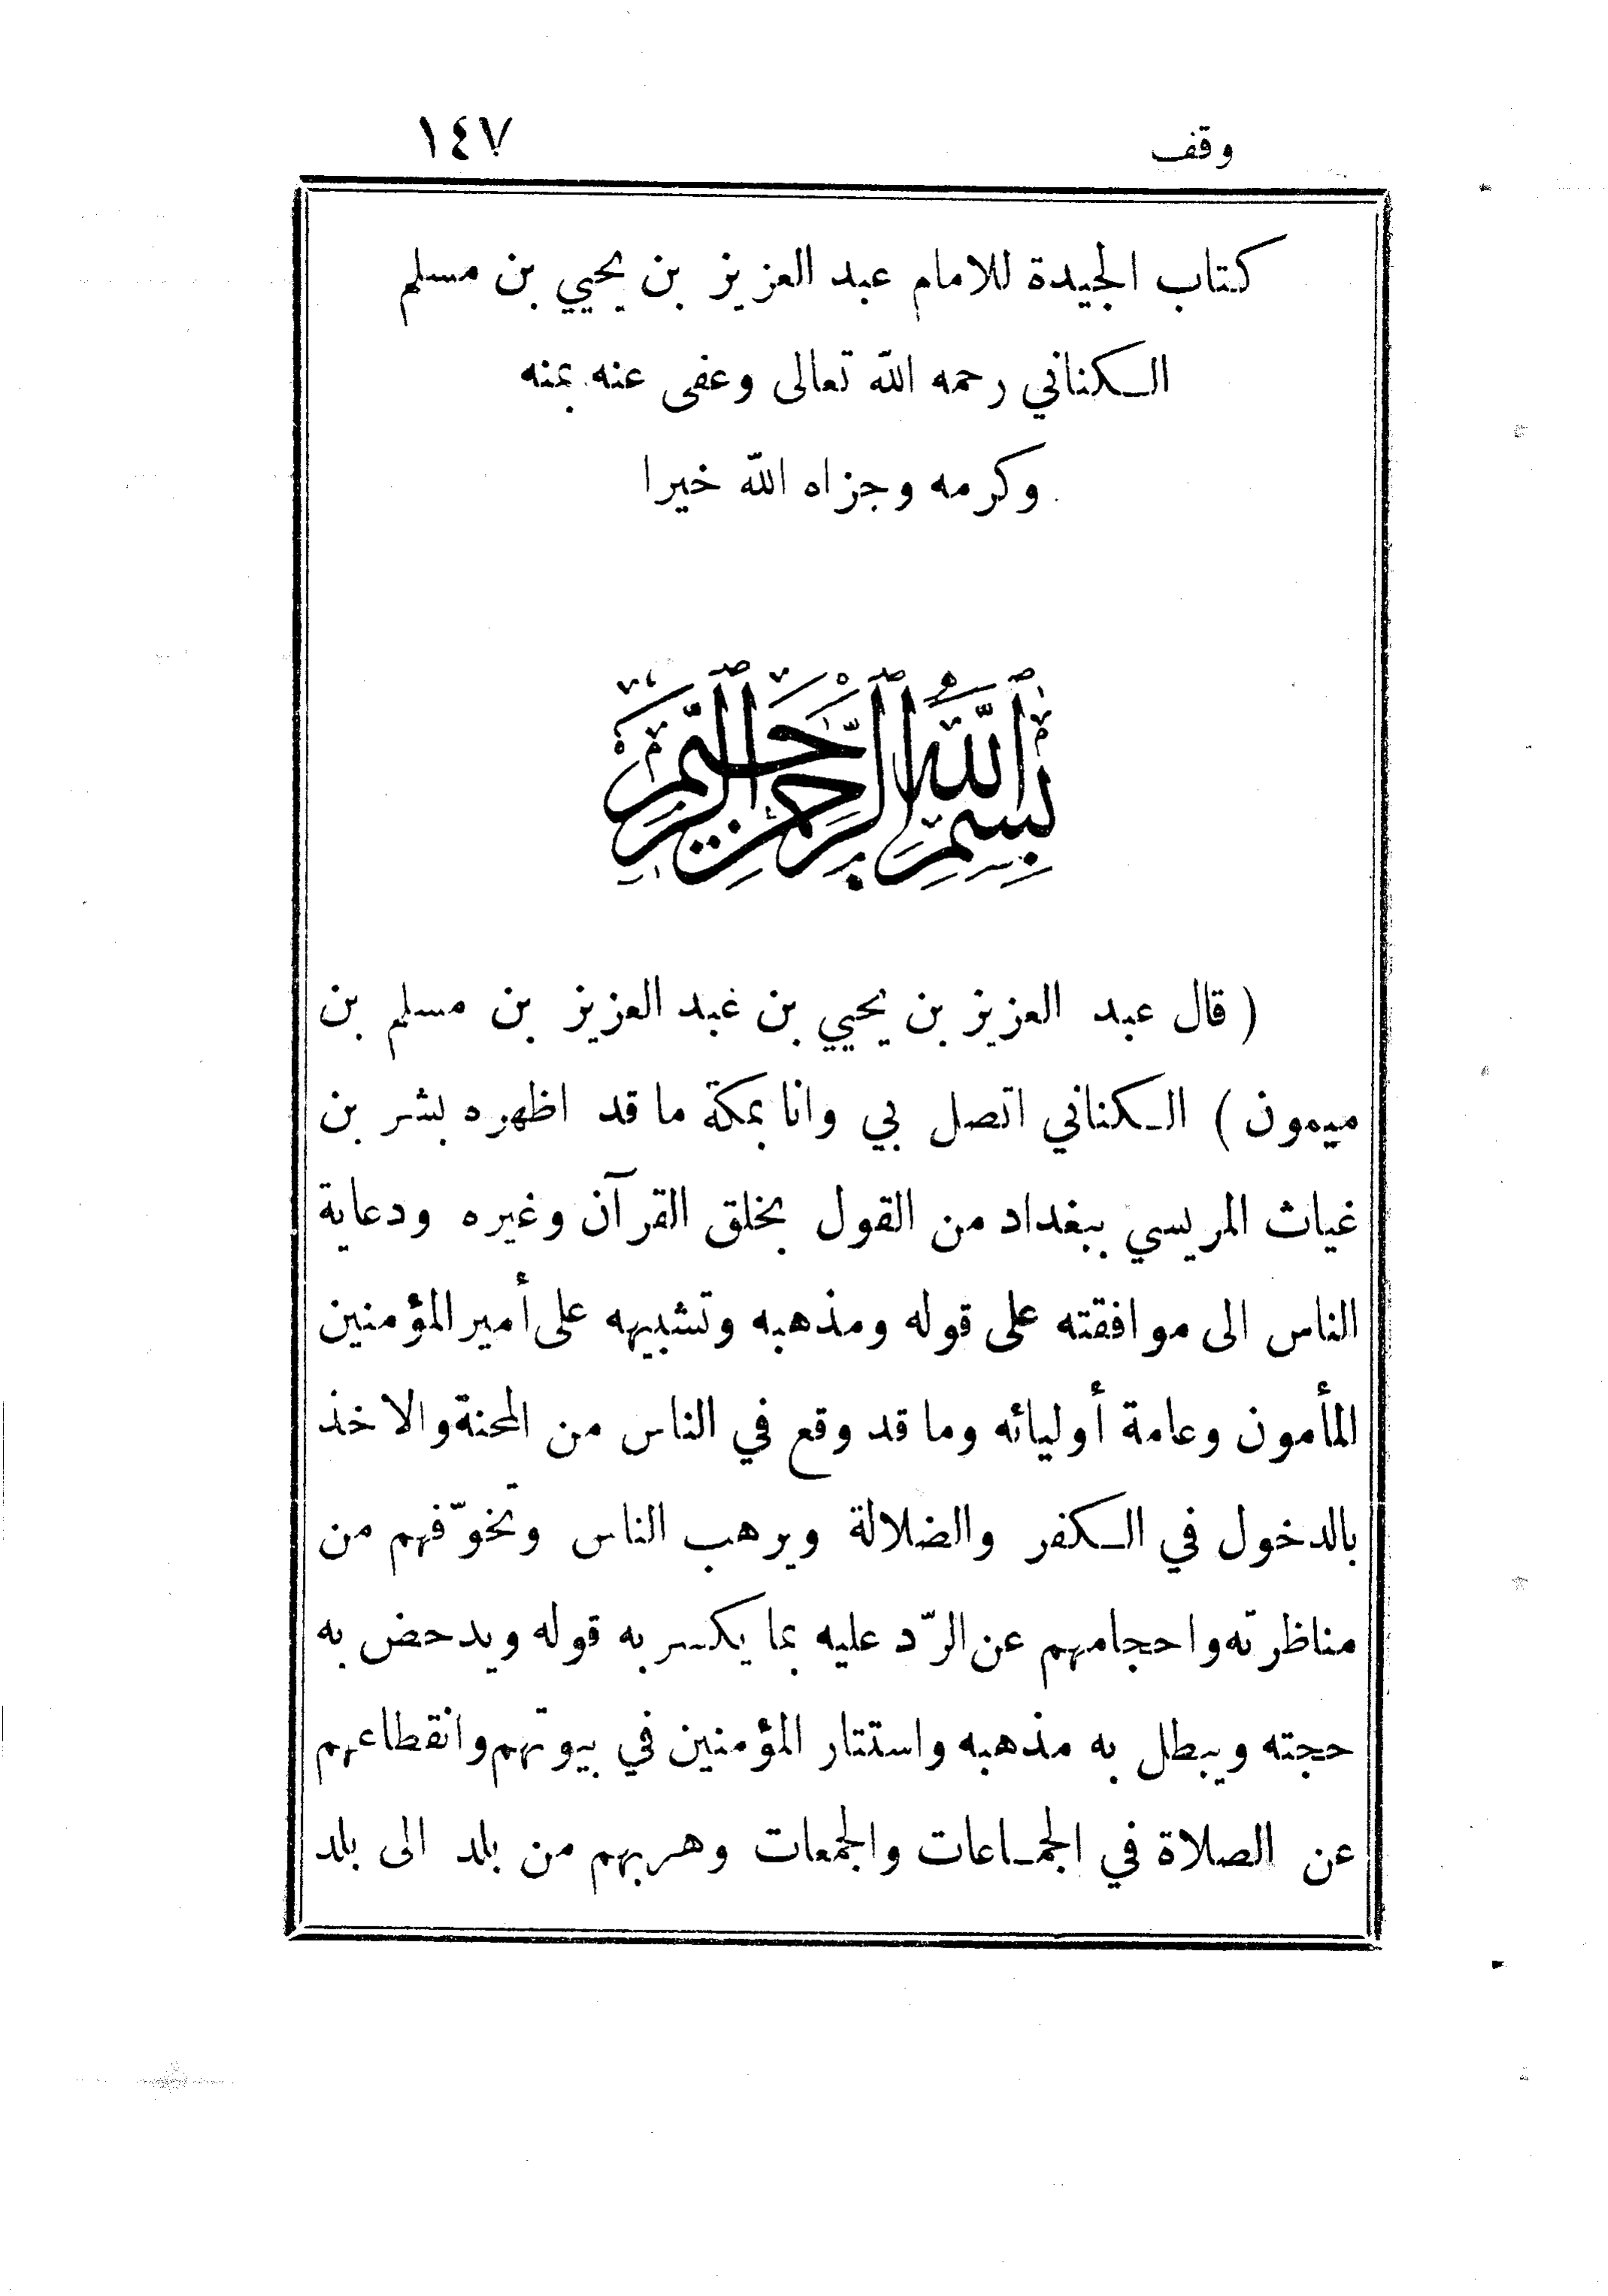 وقف ١٤٧
كتاب الجيدة للامام عبد العزيز بن يحيي بن مسلم
الكناني رحمه الله تعالى وعفى عنه بمنه
وكرمه وجزاه الله خيرا
بسم الله الرحمن الرحيم
( قال عبد العزيز بن يحيي بن غبد العزيز بن مسلم بن
ميمون ) الكناني اتصل بي وانا بمكة ما قد اظهره بشر بن
غياث المريسي ببغداد من القول بخلق القرآن وغيره ودعاية
الناس الى موافقته على قوله ومذهبه وتشبيهه على أمير المؤمنين
المأمون وعامة أوليائه وما قد وقع في الناس من المحنة والاخذ
بالدخول في الكفر والضلالة ويرهب الناس وتخوّفهم من
مناظرته واحجامهم عن الرّد عليه بما يكسر به قوله ويدحض به
حجته ويبطل به مذهبه واستتار المؤمنين في بيوتهم وانقطاعهم
عن الصلاة في الجماعات والجمعات وهربهم من بلد الى بلد